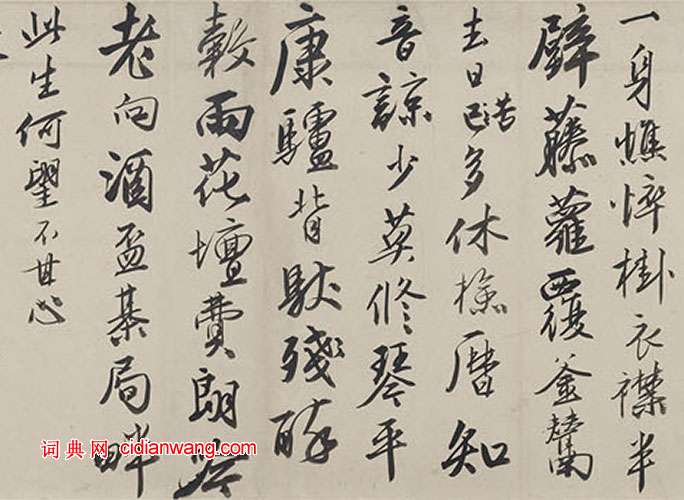 一身憔悴掛衣襟半
壁藤蘿覆釜鬵
去日已多休檢曆知
音諒少莫修琴平
康驢背馱殘醉
穀雨花壇費朗吟
老向酒盃棊局畔
此生何望不甘心
词典网 cidianwang.com